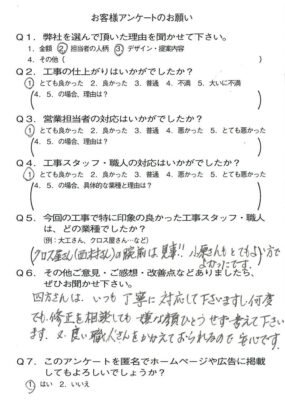 お客様アンケートのお願い
Q1．弊社を選んで頂いた理由を聞かせて下さい。
1．金額 ②．担当者の人柄 ③．デザイン・提案内容
4．その他（　　　）
Q2．工事の仕上がりはいかがでしたか？
①とても良かった 2．良かった 3．普通 4．不満 5．大いに不満
4．5．の場合、理由は？
Q3．営業担当者の対応はいかがでしたか？
①とても良かった 2．良かった 3．普通 4．悪かった 5．とても悪かった
4．5．の場合、理由は？
Q4．工事スタッフ・職人の対応はいかがでしたか？
①とても良かった 2．良かった 3．普通 4．悪かった 5．とても悪かった
4．5．の場合、具体的な業種と理由は？
Q5．今回の工事で特に印象の良かった工事スタッフ・職人
は、どの業種でしたか？
（例：大工さん、クロス屋さん…など）
クロス屋さん（西村さん）の腕前は見事!! 小原さんもとてもよい方で
よかったです。
Q6．その他ご意見・ご感想・改善点などありましたら、
ぜひお聞かせ下さい。
四方さんは、いつも丁寧に対応して下さいますし何度
でも修正を相談しても嫌な顔ひとつせず考えて下さい
ます。又、良い職人さんをかかえておられるので安心です。
Q7．このアンケートを匿名でホームページや広告に掲載
してもよろしいでしょうか？
①はい 2．いいえ